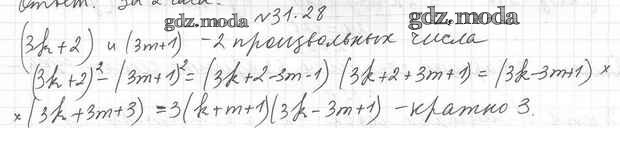 Ответ: за 2 часа.
gdz.moda №31.28 gdz.moda
(3k+2) и (3m+1) - 2 произвольных числа
(3k+2)² - (3m+1)² = (3k+2-3m-1) (3k+2+3m+1) = (3k-3m+1) ×
× (3k+3m+3) = 3(k+m+1)(3k-3m+1) - кратно 3.